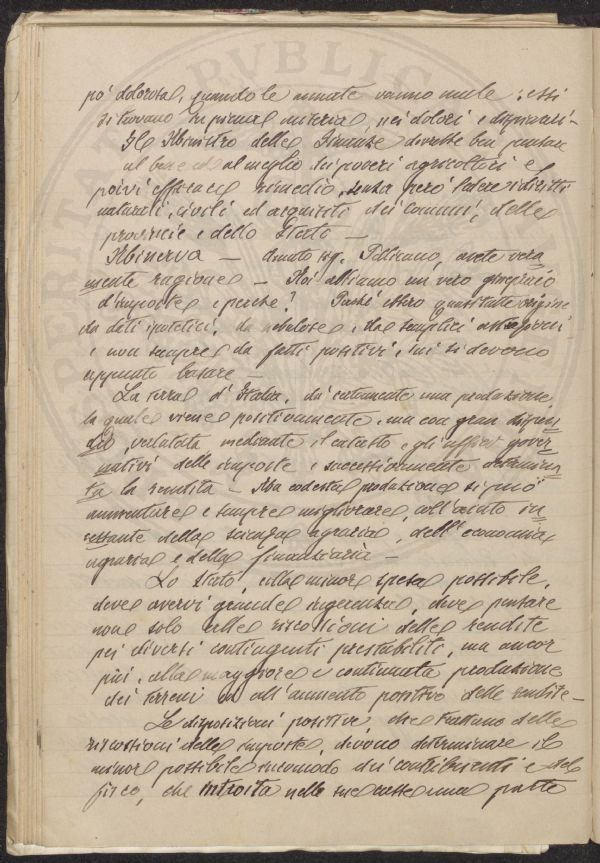 più dolorosa, quando le annate vanno male: essi
si trovano in piena miseria, nei dolori e
Il Ministro delle Finanze dovrebbe ben pensare
al bene ed al meglio dei poveri agricoltori e
poi vi efficace rimedio, senza però ledere i diritti
naturali, civili ed acquisiti dei Comuni, delle
provincie e dello Stato —
Minerva — Amato sig. Pellicano, avete vera
mente ragione — Noi abbiamo un vero
d'imposte e perchè? Perchè essero quantitate origine
da dati ipotetici, da nebulose, da semplici astrazioni
e non sempre da fatti positivi, sui si devono
appunto basare —
La terra d'Italia, dà certamente una produzione
la quale viene positivamente, ma con gran dispen
dio, valutata mediante il catasto e gli uffici gover
nativi delle imposte e successivamente determina
ta la rendita — Ma codesta produzione si può
aumentare e sempre migliorare, coll'aiuto in
cessante della scienza agraria, dell'economia
agraria e della finanziaria —
Lo Stato, colla minor spesa possibile,
deve avervi grande ingerenza, deve pensare
non solo alle riscossioni delle rendite
pei diversi contingenti prestabiliti, ma ancor
più, alla maggiore e continuata produzione
dei terreni ed all'aumento positivo delle rendite —
Le disposizioni positive, che trattano delle
riscossioni delle imposte, devono determinare il
minor possibile incomodo dei contribuenti e del
fisco, che introita nelle sue casse una parte
PVBLIC